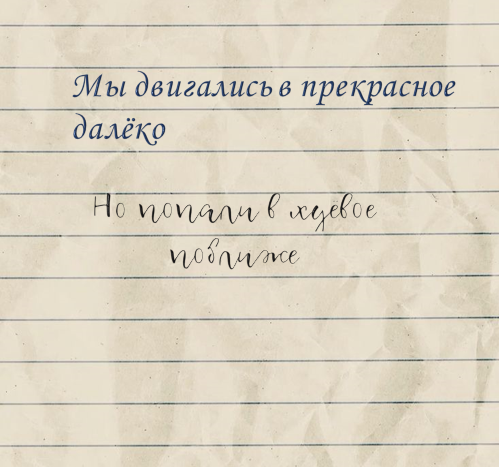 Мы двигались в прекрасное
далёко
Но попали в хуевое
поближе